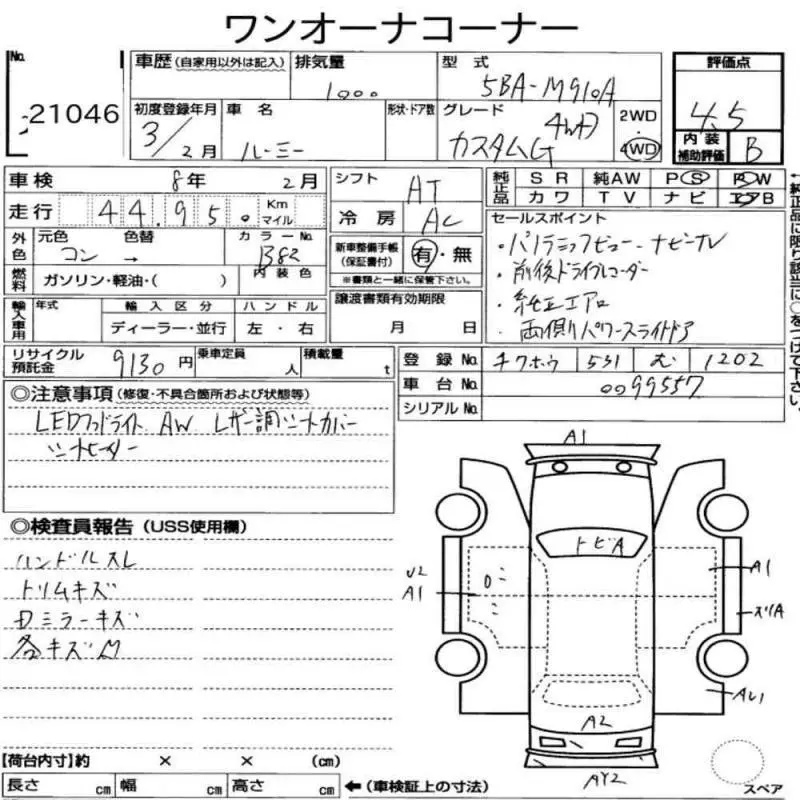 ワンオーナコーナー
No.
21046
車歴 (自家用以外は記入)
排気量
1000
型 式
5BA-M910A
評価点
4.5
初度登録年月
3/2月
車 名
ルーミー
形状・ドア数
グレード
4WD
カスタムG
2WD
4WD
内 装
補助評価
B
車検
8年 2月
シフト
AT
純正品
S R
純AW
P S
P W
カ ワ
T V
ナ ビ
エアB
走行
44.95.
Km
マイル
冷 房
AC
セールスポイント
・パノラミックビュー・ナビナル
・前後ドライブレコーダー
・純正エアロ
・両側パワースライドドア
外色
元色
コン
色替
→
カラーNo.
B82
新車整備手帳
(保証書付)
有・無
※書類と一緒に保管下さい。
燃料
ガソリン・軽油・( )
内 装 色
輸入車用
年式
輸 入 区 分
ディーラー・並行
ハ ン ド ル
左 ・ 右
譲渡書類有効期限
月 日
リサイクル
預託金
9130 円
乗車定員
人
積載量
t
登 録 No.
チクホウ
531
む
1202
車 台 No.
0099557
シリアル No.
◎注意事項 (修復・不具合箇所および状態等)
LEDヘッドライト AW レザー調シートカバー
シートヒーター
◎検査員報告 (USS使用欄)
ハンドルスレ
トリムキズ
Dミラーキズ
各キズM
A1
トビA
U2
A1
A1
スリA
AU1
A2
AY2
スペア
【荷台内寸】約 × × (cm)
長さ cm
幅 cm
高さ cm
←(車検証上の寸法)